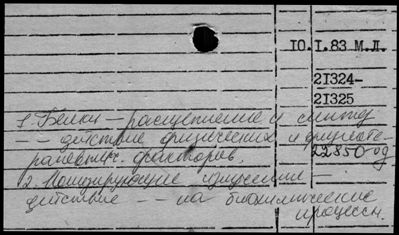 10.I.83 М.Л.
21324-
21325
1. Белки — расщепление и синтез
— — действие физических и физиоте-
рапевтич. факторов.
22850-од
2. Ионизирующее излучение —
действие — — на биохимические
процессы.